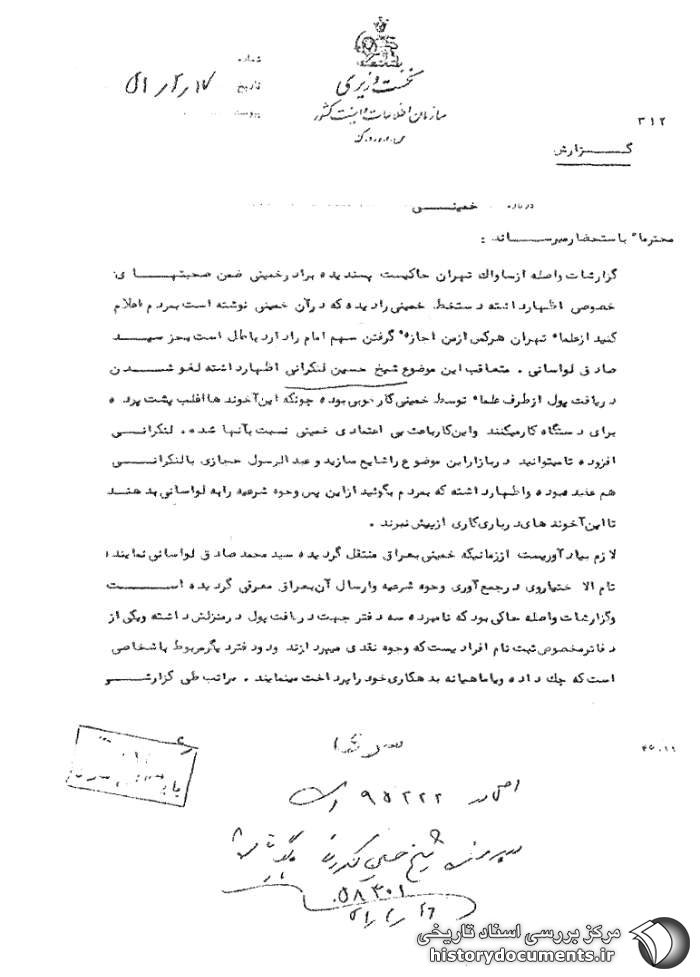 نخست وزیری
سازمان اطلاعات و امنیت کشور
شماره
تاریخ
پیوست
۳۱۲
گزارش
درباره خمینی
محترما" باستحضار میرساند :
گزارشات واصله از ساواك تهران حاکیست پسندیده برادر خمینی ضمن صحبتهای
خصوصی اظهار داشته دستخط خمینی را دیده که در آن خمینی نوشته است بمردم اعلام
کنید از علما" تهران هرکس از من اجازه گرفتن سهم امام را دارد باطل است بجز سید
صادق لواسانی . متعاقب این موضوع شیخ حسین لنکرانی اظهار داشته لغو شدن
دریافت پول از طرف علما" توسط خمینی کار خوبی بوده چونکه این آخوند ها اغلب پشت پرده
برای دستگاه کار میکنند و این کار باعث بی اعتمادی خمینی نسبت بآنها شده . لنکرانی
افزوده تا میتوانید در بازار این موضوع را شایع سازید و عبدالرسول حجازی با لنکرانی
هم عقیده بوده و اظهار داشته که بمردم بگوئید از این پس وجوه شرعیه را به لواسانی بدهند
تا این آخوند های درباری کاری از پیش نبرند .
لازم بیاد آوریست از زمانیکه خمینی بعراق منتقل گردیده سید محمد صادق لواسانی نماینده
تام الاختیار وی در جمع آوری وجوه شرعیه و ارسال آن بعراق معرفی گردیده است
و گزارشات واصله حاکی بود که نامبرده سه دفتر جهت دریافت پول در منزلش داشته و یکی از
دفاتر مخصوص ثبت نام افرادیست که وجوه نقدی میپردازند و دو دفتر دیگر مربوط باشخاصی
است که چك داده و یا ماهیانه بدهکاری خود را پرداخت مینمایند . مراتب طی گزارشی
۹۵۲۲۲
شیخ حسین لنکرانی
۵۸۳۰۱
مرکز بررسی اسناد تاریخی
historydocuments.ir